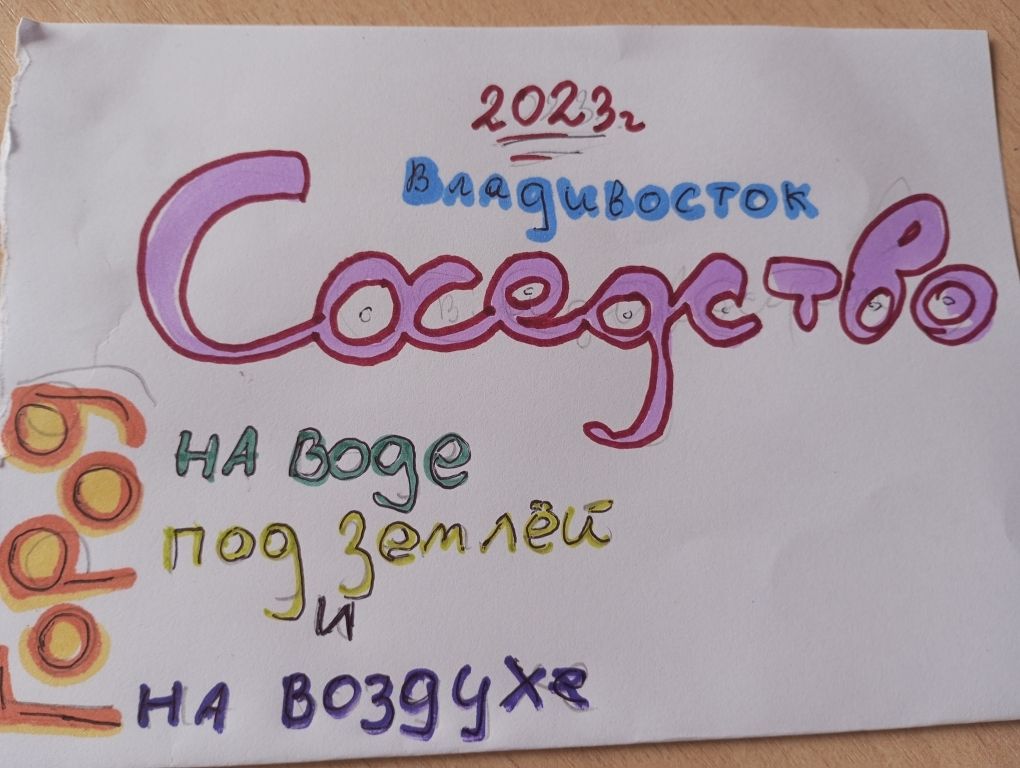 2023г
Владивосток
Соседство
Город
на воде
под землёй
и
на воздухе